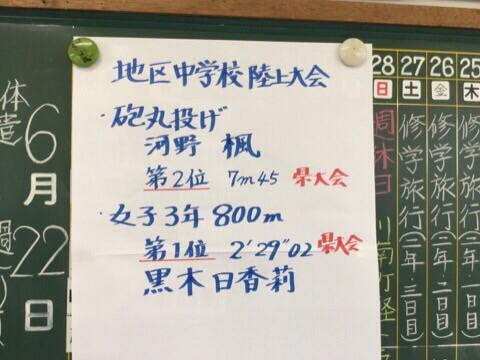 地区中学校陸上大会
・砲丸投げ
河野 楓
第2位 7m45 県大会
・女子3年 800m
第1位 2'29"02 県大会
黒木日香莉
6
月
22
日
28 27 26 25
日 土 金 木
週休日
修学旅行(二年・三日目)
修学旅行(二年・二日目)
修学旅行(二年・一日目)